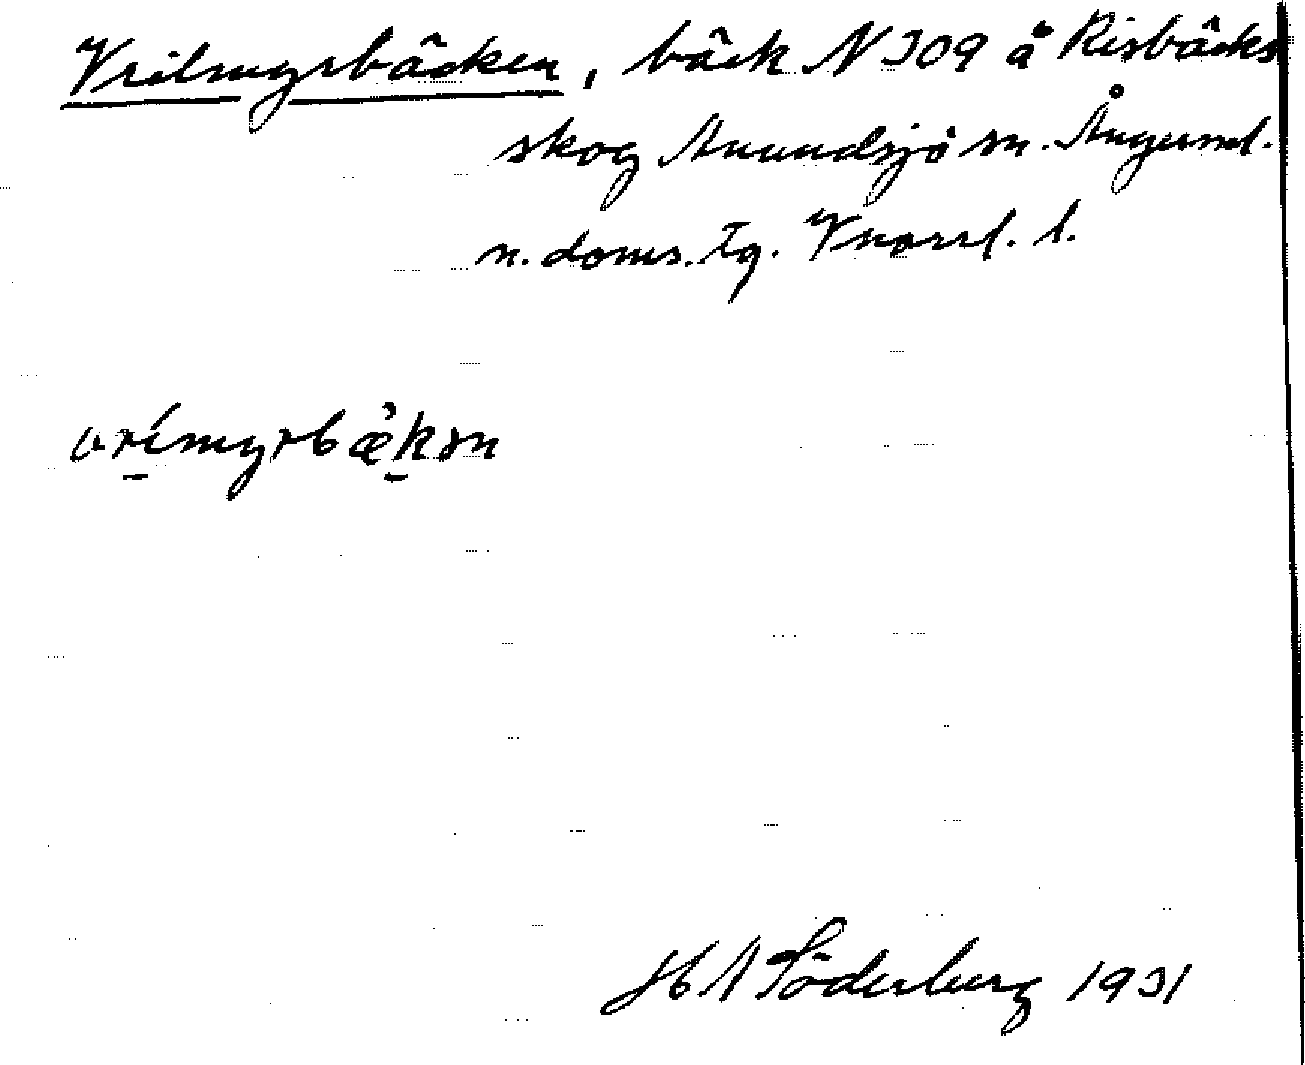 Vrilmyrbäcken, bäck N 309 å Risbäcks
skog Anundsjö sn. Ångerml.
n. doms. tg. Vnorrl. l.
vrímyrbæ̀kən
H A Söderberg 1931